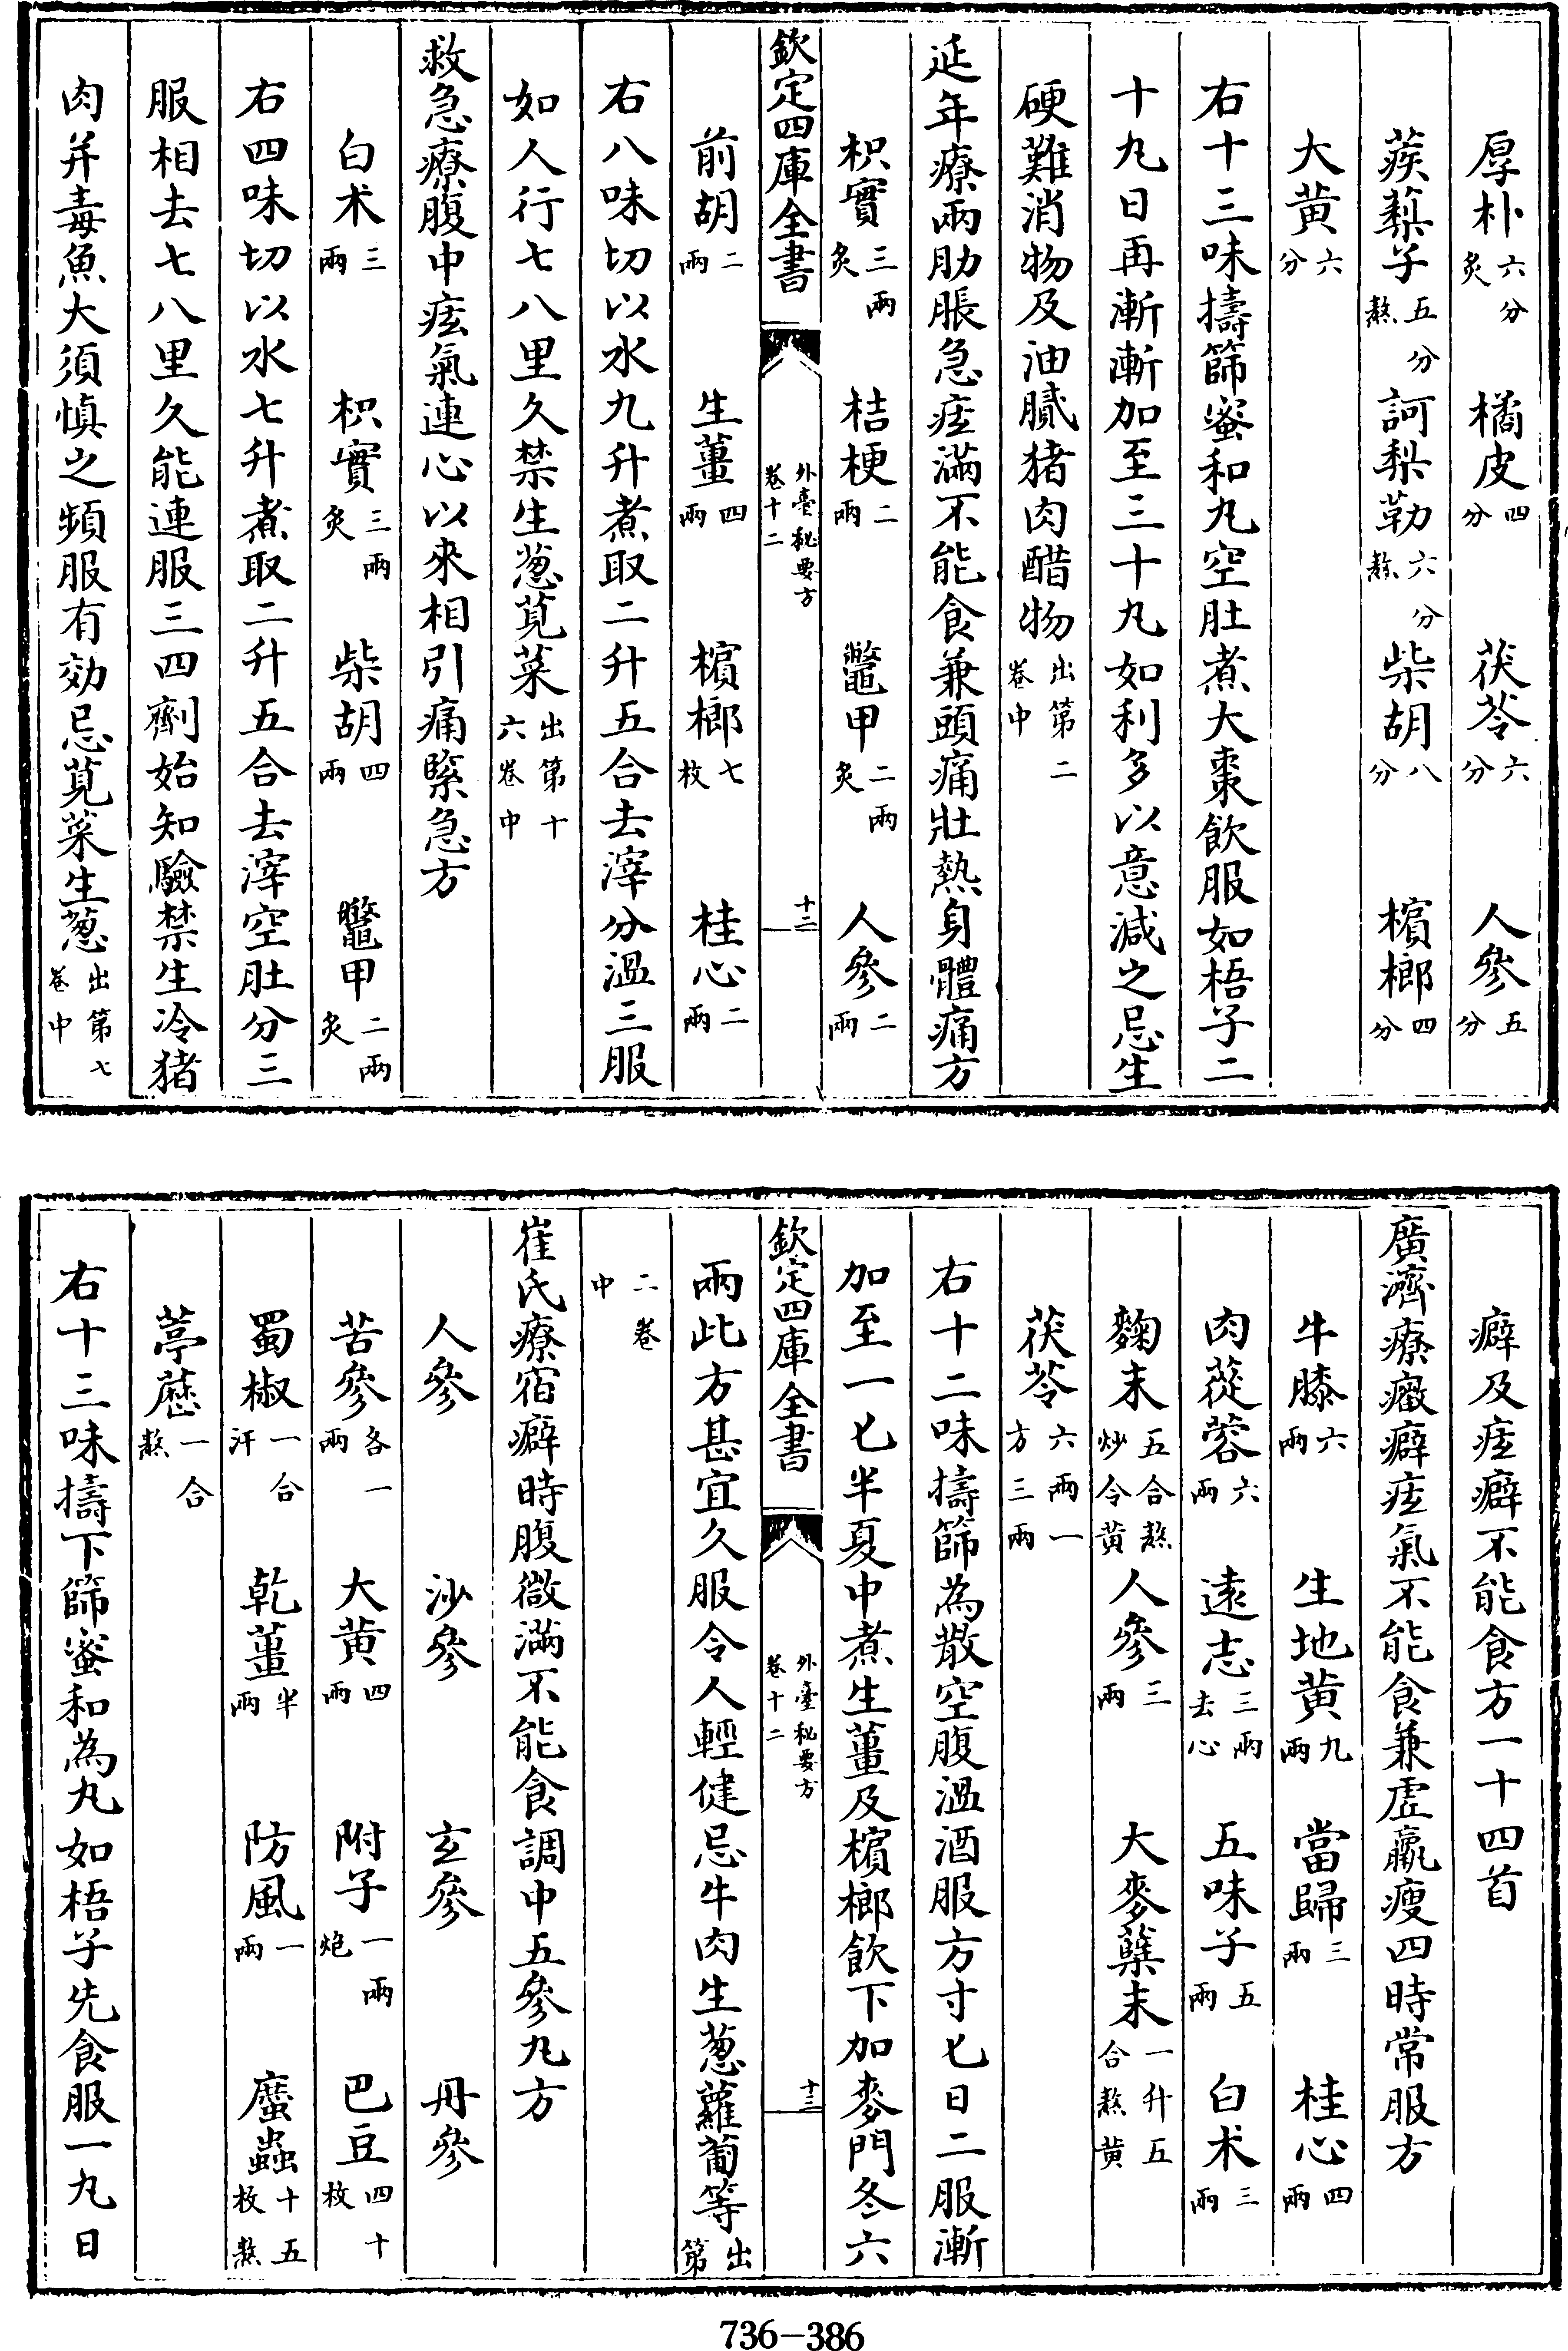 厚朴六分炙　橘皮四分　茯苓六分　人參五分
蒺䔧子五分熬　訶梨勒六分熬　柴胡八分　檳榔四分
大黄六分
右十三味擣篩蜜和丸空肚煮大棗飲服如梧子二
十丸日再漸漸加至三十丸如利多以意減之忌生
硬難消物及油膩猪肉醋物出第二卷中
延年療兩肋脹急痃滿不能食兼頭痛壯熱身體痛方
枳實三兩炙　桔梗二兩　鼈甲二兩炙　人參二兩
欽定四庫全書　外臺秘要方卷十二　十二
前胡二兩　生薑四兩　檳榔七枚　桂心二兩
右八味切以水九升煮取二升五合去滓分溫三服
如人行七八里久禁生葱莧菜出第十六卷中
救急療腹中痃氣連心以來相引痛緊急方
白术三兩　枳實三兩炙　柴胡四兩　鼈甲二兩炙
右四味切以水七升煮取二升五合去滓空肚分三
服相去七八里久能連服三四劑始知驗禁生冷猪
肉并毒魚大須慎之頻服有効忌莧菜生葱出第七卷中
癖及痃癖不能食方一十四首
廣濟療癥癖痃氣不能食兼虛羸瘦四時常服方
牛膝六兩　生地黄九兩　當歸三兩　桂心四兩
肉蓯蓉六兩　逺志三兩去心　五味子五兩　白术三兩
麴末五合熬炒令黄　人參三兩　大麥糵末一升五合熬黄
茯苓六兩一方三兩
右十二味擣篩為散空腹溫酒服方寸匕日二服漸
加至一匕半夏中煮生薑及檳榔飲下加麥門冬六
欽定四庫全書　外臺秘要方卷十二　十三
兩此方甚宜久服令人輕健忌牛肉生葱蘿蔔等出第
二卷中
崔氏療宿癖時腹㣲滿不能食調中五參丸方
人參　沙參　玄參　丹參
苦參各一兩　大黄四兩　附子一兩炮　巴豆四十枚
蜀椒一合汗　乾薑半兩　防風一兩　䗪蟲十五枚熬
葶藶一合熬
右十三味擣下篩蜜和為丸如梧子先食服一丸日
736-386